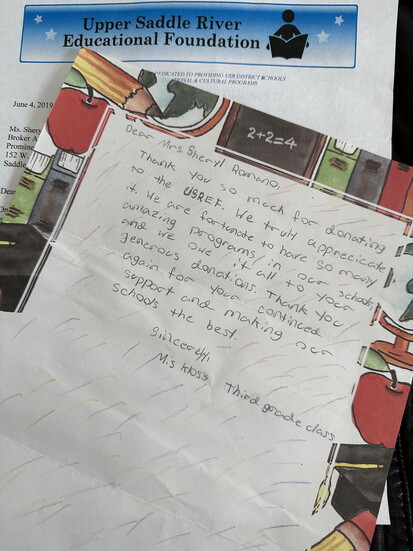 Upper Saddle River
Educational Foundation
DEDICATED TO PROVIDING USR DISTRICT SCHOOLS
CULTURAL PROGRAMS
June 4, 2019
Ms. Sheryl
Broker A
Promine
152 W.
Saddle
Dear
2+2=4
Dear Mrs Sheryl Romano,
Thank you so much for donating
to the USREF. We truly apprecicate
it. We are fortunate to have so many
amazing programs in our schools
and we owe it all to your
generous donations. Thank you
again for your continued
support and making our
schools the best.
Sincerely,
Mis kloss Third grade class